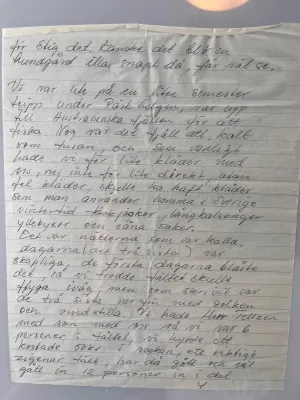 för Stig det. Kanske det blir en
hundgård illa snapt då, får väl se.
Vi var ute på en liten semester
tripp under Påsk helgen, var upp
till Australienska fjällen för att
fiska. Nog var det fjäll allt, kallt
som fasan, och som vanligt
hade vi för lite kläder med
oss, nej inte för lite direkt, utan
fel kläder, skulle ha haft kläder
som man använder hemma i Sverige
vintertid, långkalsonger
yllebyxor och såna saker.
Det var nätterna som var kalla,
dagarna (de två sista) var
skapliga, de första dagarna blåste
det så vi trodde tältet skulle
flyga iväg, men som sagt var
de två sista varma med solsken
och vindstilla. Vi hade Herr
med som med oss så vi var 6
personer i tältet, vi hyrde ett
kostade 50kr i veckan, ett riktigt
zigenar tält, har då gått och väl
gått in 12 personer in i det